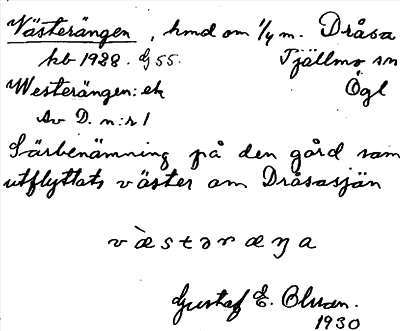 Västerängen, hmd om 1/4 m. Dråsa
hb 1928. G 55. Tjällmo sn
Westerängen: ek Ögl
Av D. n:r 1
Särbenämning på den gård som
utflyttats väster om Dråsasjön
vὰstəræŋa
Gustaf E. Olsson.
1930